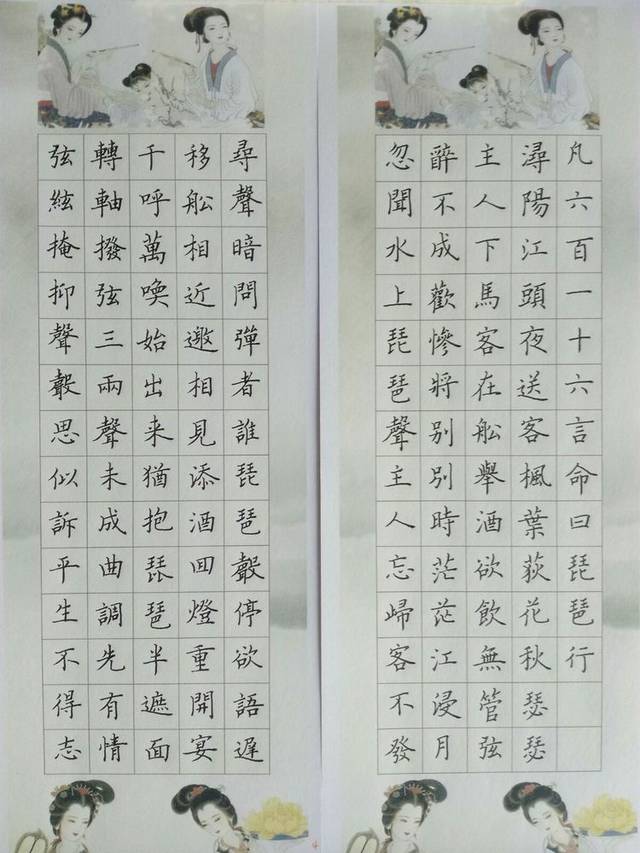 凡六百一十六言命曰琵琶行
潯陽江頭夜送客楓葉荻花秋瑟瑟
主人下馬客在舩舉酒欲飲無管弦
醉不成歡慘將别別時茫茫江浸月
忽聞水上琵琶聲主人忘歸客不發
尋聲暗問彈者誰琵琶聲停欲語遲
移舩相近邀相見添酒囬燈重開宴
千呼萬喚始出来猶抱琵琶半遮面
轉軸撥弦三兩聲未成曲調先有情
弦絃掩抑聲聲思似訴平生不得志